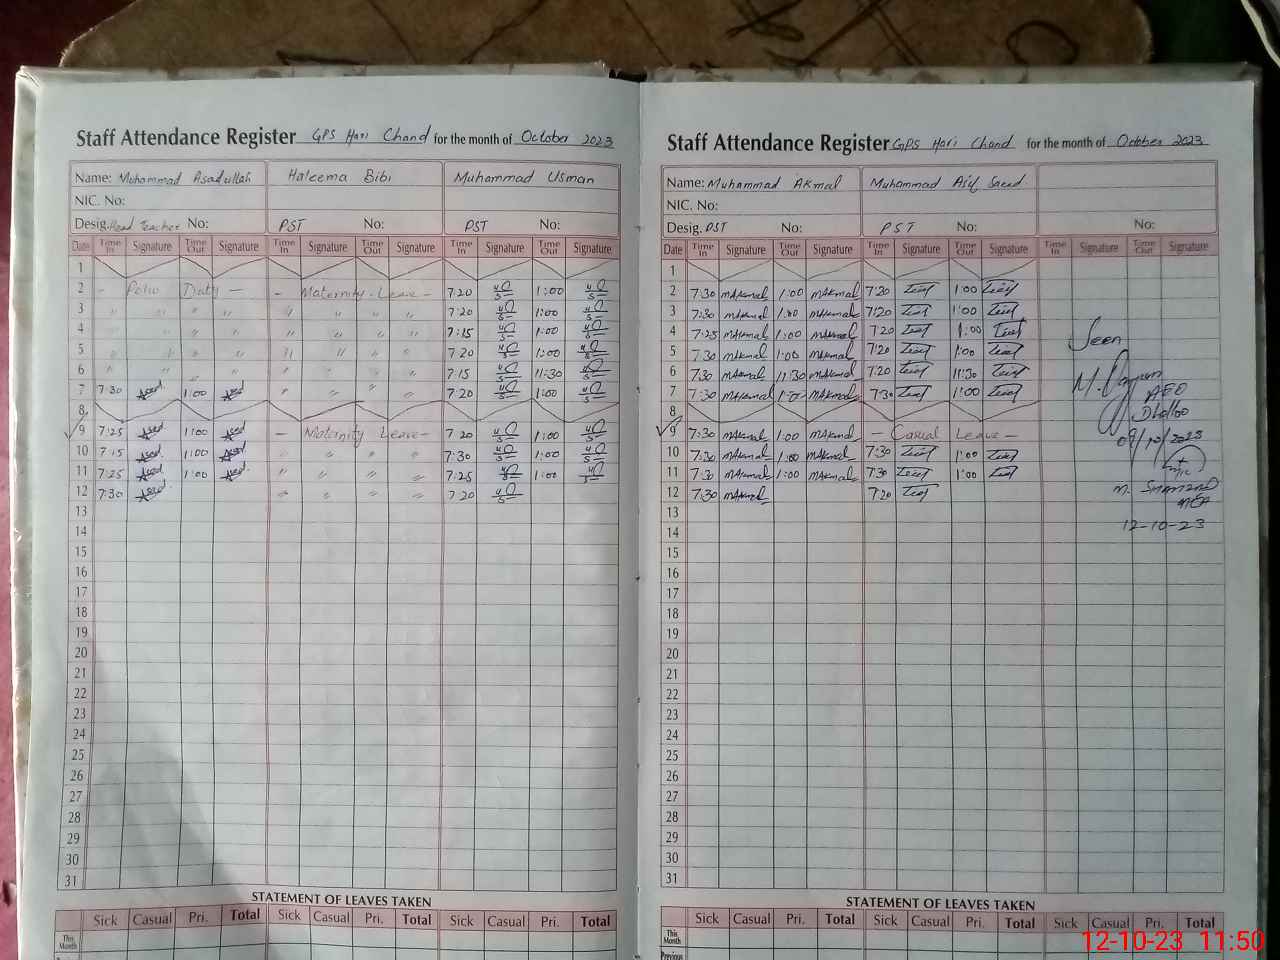 Staff Attendance Register GPS Hari Chand for the month of October 2023
Name: Muhammad Asadullah Haleema Bibi Muhammad Usman
NIC. No:
Desig. Head Teacher No: PST No: PST No:
Date Time In Signature Time Out Signature Time In Signature Time Out Signature Time In Signature Time Out Signature
1
2 - Polio Duty - - Maternity Leave - 7:20 1:00
3 " " " " " " " " 7:20 1:00
4 " " " " " " " " 7:15 1:00
5 " " " " " " " " 7:20 1:00
6 " " " " " " " " 7:15 11:30
7 7:30 Asad 1:00 Asad " " " " 7:20 1:00
8
9 7:25 Asad 1:00 Asad - Maternity Leave - 7:20 1:00
10 7:15 Asad 1:00 Asad " " " " 7:30 1:00
11 7:25 Asad 1:00 Asad " " " " 7:25 1:00
12 7:30 Asad " " " " 7:20
13
14
15
16
17
18
19
20
21
22
23
24
25
26
27
28
29
30
31
STATEMENT OF LEAVES TAKEN
Sick Casual Pri. Total Sick Casual Pri. Total Sick Casual Pri. Total
This Month
Staff Attendance Register GPS Hari Chand for the month of October 2023
Name: Muhammad Akmal Muhammad Asif Saeed
NIC. No:
Desig. PST No: PST No: No:
Date Time In Signature Time Out Signature Time In Signature Time Out Signature Time In Signature Time Out Signature
1
2 7:30 MAkmal 1:00 MAkmal 7:20 1:00
3 7:30 MAkmal 1:00 MAkmal 7:20 1:00
4 7:25 MAkmal 1:00 MAkmal 7:20 1:00
5 7:30 MAkmal 1:00 MAkmal 7:20 1:00
6 7:30 MAkmal 11:30 MAkmal 7:20 11:30
7 7:30 MAkmal 1:00 MAkmal 7:30 1:00
8
9 7:30 MAkmal 1:00 MAkmal - Casual Leave -
10 7:30 MAkmal 1:00 MAkmal 7:30 1:00
11 7:30 MAkmal 1:00 MAkmal 7:30 1:00
12 7:30 MAkmal 7:20
13
14
15
16
17
18
19
20
21
22
23
24
25
26
27
28
29
30
31
Seen
AEO
09/10/2023
MEA
12-10-23
STATEMENT OF LEAVES TAKEN
Sick Casual Pri. Total Sick Casual Pri. Total Sick Casual Pri. Total
This Month
Previous
12-10-23 11:50